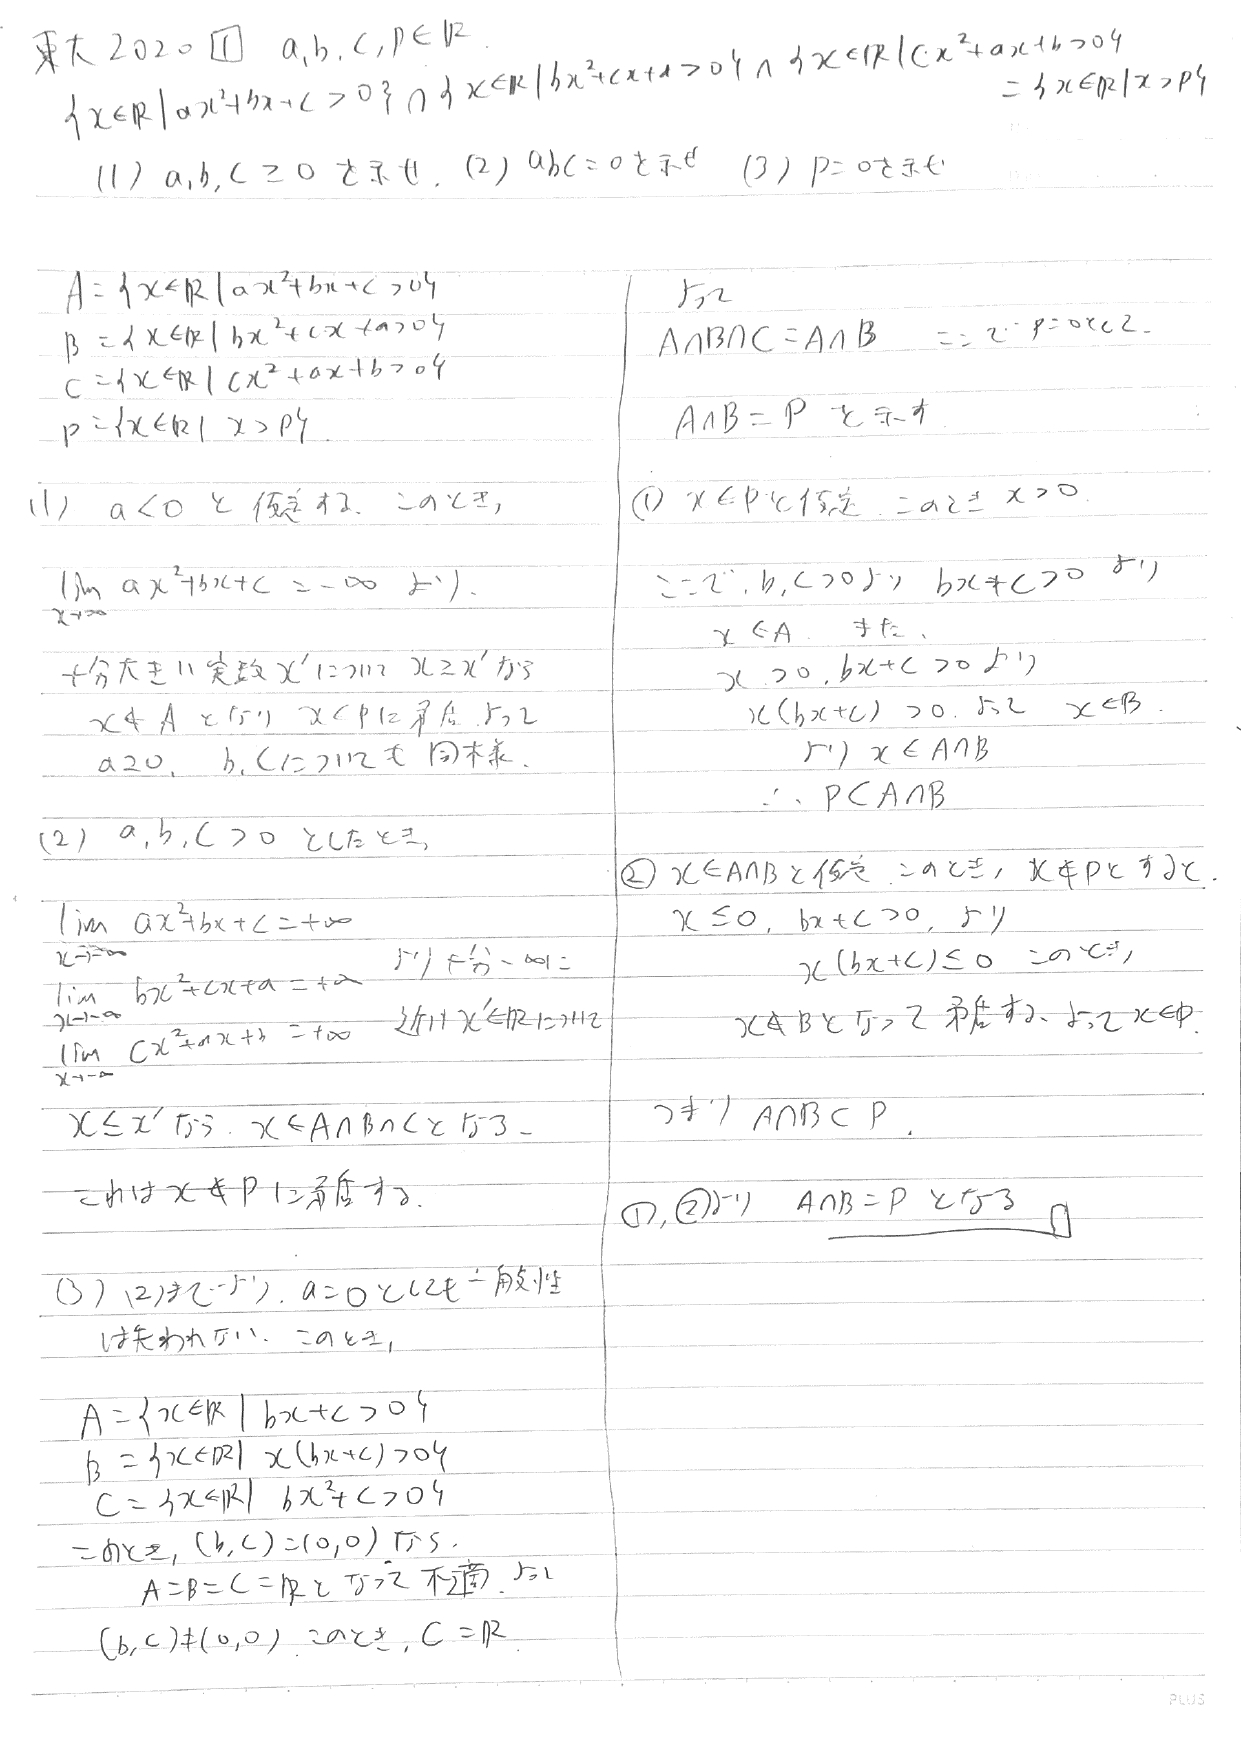 東大2020 1 a,b,c,p∈ℝ
{x∈ℝ|ax²+bx+c>0}∩{x∈ℝ|bx²+cx+a>0}∩{x∈ℝ|cx²+ax+b>0}
={x∈ℝ|x>p}
(1) a,b,c≥0を示せ. (2) abc=0を示せ (3) p=0を示せ
A={x∈ℝ|ax²+bx+c>0}
B={x∈ℝ|bx²+cx+a>0}
C={x∈ℝ|cx²+ax+b>0}
P={x∈ℝ|x>p}
(1) a<0と仮定する. このとき,
lim ax²+bx+c=-∞ より.
x→∞
十分大きい実数x'について x≥x'なら
x∉Aとなり x∈Pに矛盾 よって
a≥0. b,cについても同様.
(2) a,b,c>0としたとき,
lim ax²+bx+c=+∞
x→-∞
lim bx²+cx+a=+∞ より十分-∞に
x→-∞
lim cx²+ax+b=+∞ 近い x'∈ℝについて
x→-∞
x≤x'なら. x∈A∩B∩Cとなる.
これはx∉Pに矛盾する.
(3) (2)までより. a=0としても一般性
は失われない. このとき,
A={x∈ℝ|bx+c>0}
B={x∈ℝ|x(bx+c)>0}
C={x∈ℝ|bx²+c>0}
このとき, (b,c)=(0,0)なら.
A=B=C=ℝとなって不適. よって
(b,c)≠(0,0) このとき, C=ℝ
よって
A∩B∩C=A∩B ここでp=0として.
A∩B=Pを示す
① x∈Pと仮定. このとき x>0.
ここで, b,c>0より bx+c>0 より
x∈A. また.
x>0, bx+c>0より
x(bx+c)>0. よって x∈B.
より x∈A∩B
∴ P⊂A∩B
② x∈A∩Bと仮定. このとき, x∉Pとすると.
x≤0, bx+c>0, より
x(bx+c)≤0 このとき,
x∉Bとなって矛盾する. よってx∈P.
つまり A∩B⊂P.
①,②より A∩B=Pとなる
PLUS